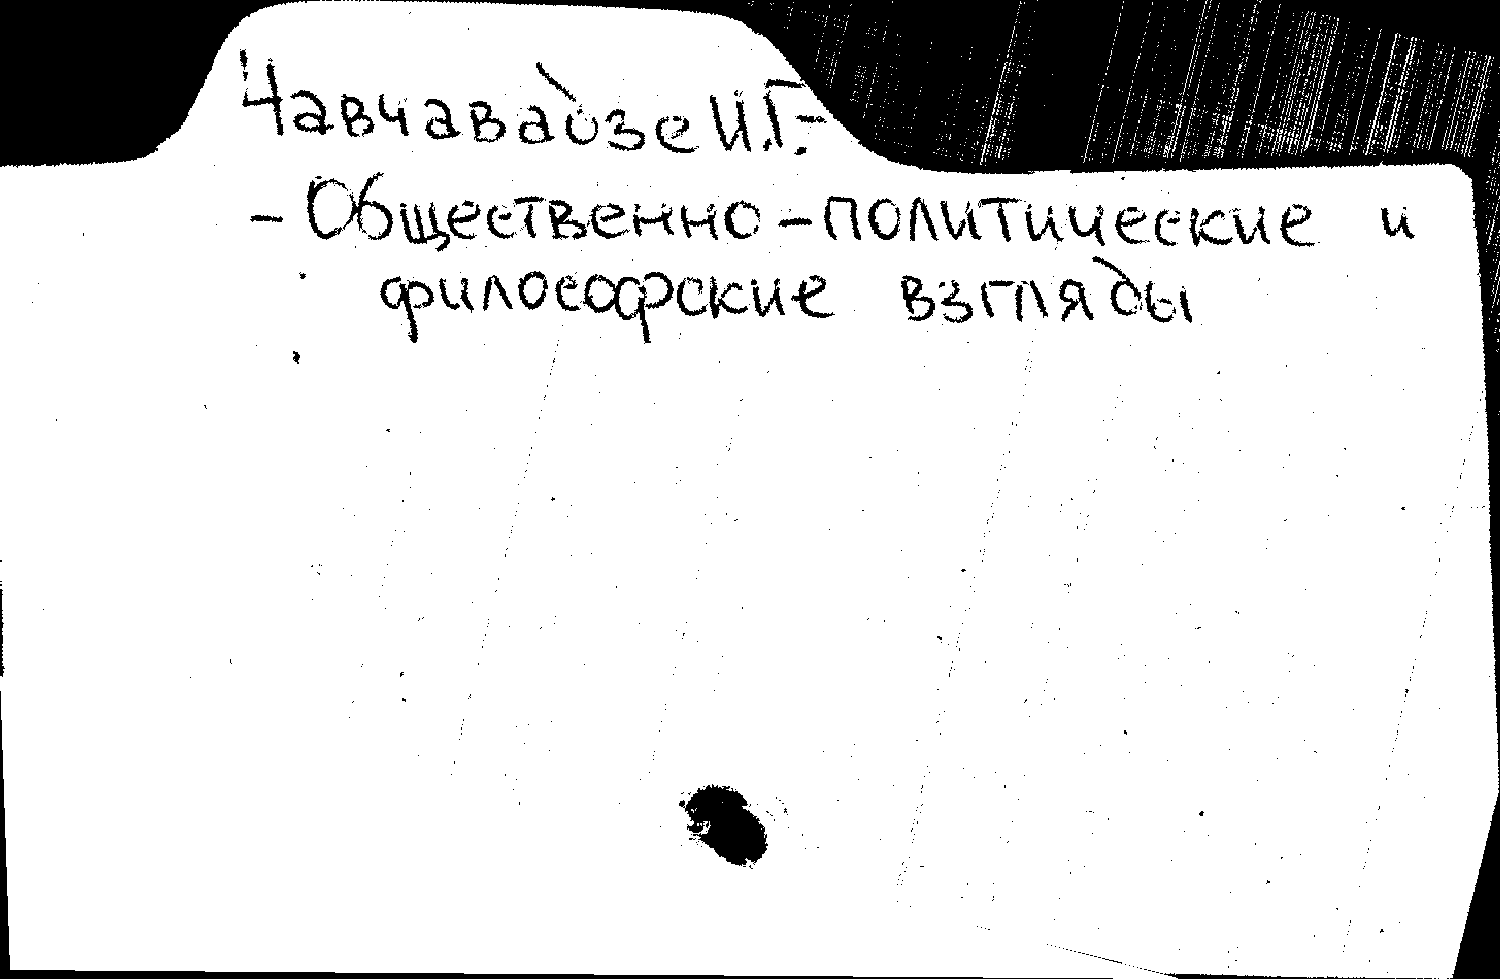 Чавчавадзе И.Г.-
- Общественно-политические и
философские взгляды